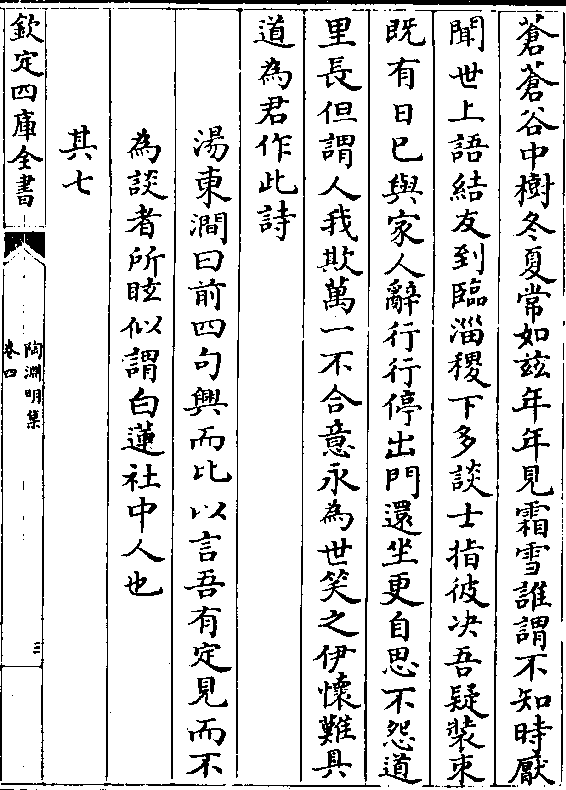 蒼蒼谷中樹冬夏常如玆年年見霜雪誰謂不知時厭
聞世上語結友到臨淄稷下多談士指彼决吾疑裝束
既有日已與家人辭行行停出門還坐更自思不怨道
里長但謂人我欺萬一不合意永為世笑之伊懷難具
道為君作此詩
湯東澗曰前四句興而比以言吾有定見而不
為談者所眩似謂白蓮社中人也
其七
欽定四庫全書
陶淵明集
卷四
三